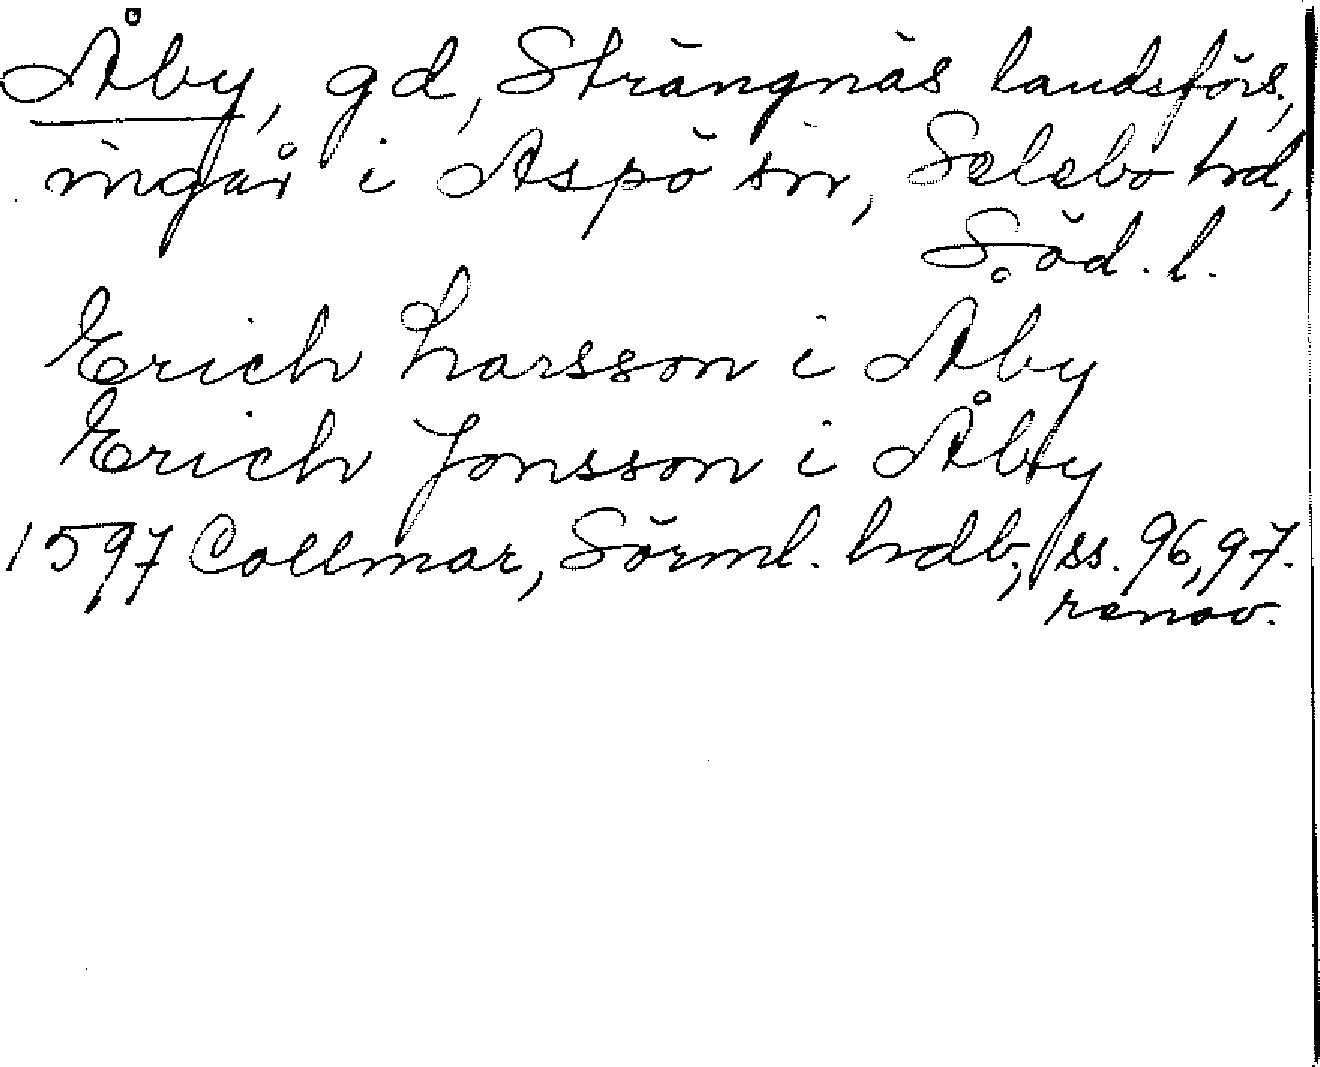 Åby, gd, Strängnäs landsförs.,
ingår i Aspö sn, Selebo hd,
Söd. l.
Erich Larsson i Åby
Erich Jonsson i Åby
1597 Collmar, Sörml. hdb., ss. 96, 97.
renov.